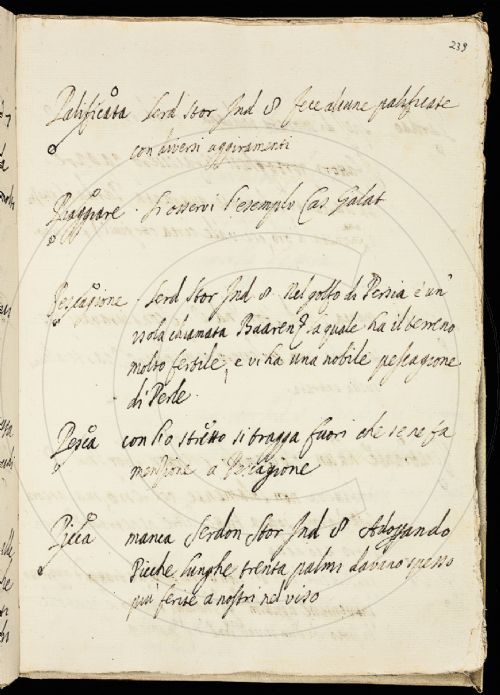 239
Palificata Serd Stor Ind 8 fece alcune palificate
con diversi aggiramenti
Piaggiare. Si osservi l'esemplo Cas Galat
Pescagione. Serd Stor Ind 8. Nel golfo di Persia è un'
isola chiamata Baaren la quale ha il terreno
molto fertile, e vi ha una nobile pescagione
di Perle.
Pesca con l'o stretto si tragga fuori che se ne fa
menzione a Pescagione
Picca manca Serdon Stor Ind 8 Adossando
Picche lunghe trenta palmi davano spesso
più ferite a nostri nel viso